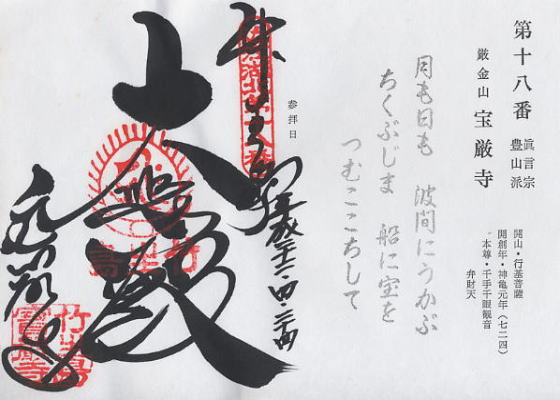 第十八番
眞言宗
豊山派
厳金山 宝厳寺
開山・行基菩薩
開創年・神亀元年（七二四）
本尊・千手千眼観音
弁財天
月も日も 波間にうかぶ
ちくぶじま 船に宝を
つむここちして
参拝日
平成二十二・四・二十四
大悲殿
竹生島
竹生島
寳厳寺